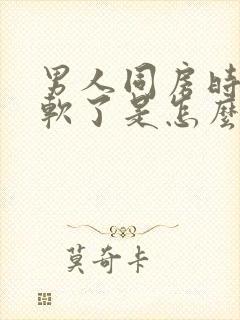 男人同房时
軟了是怎麼
莫奇卡